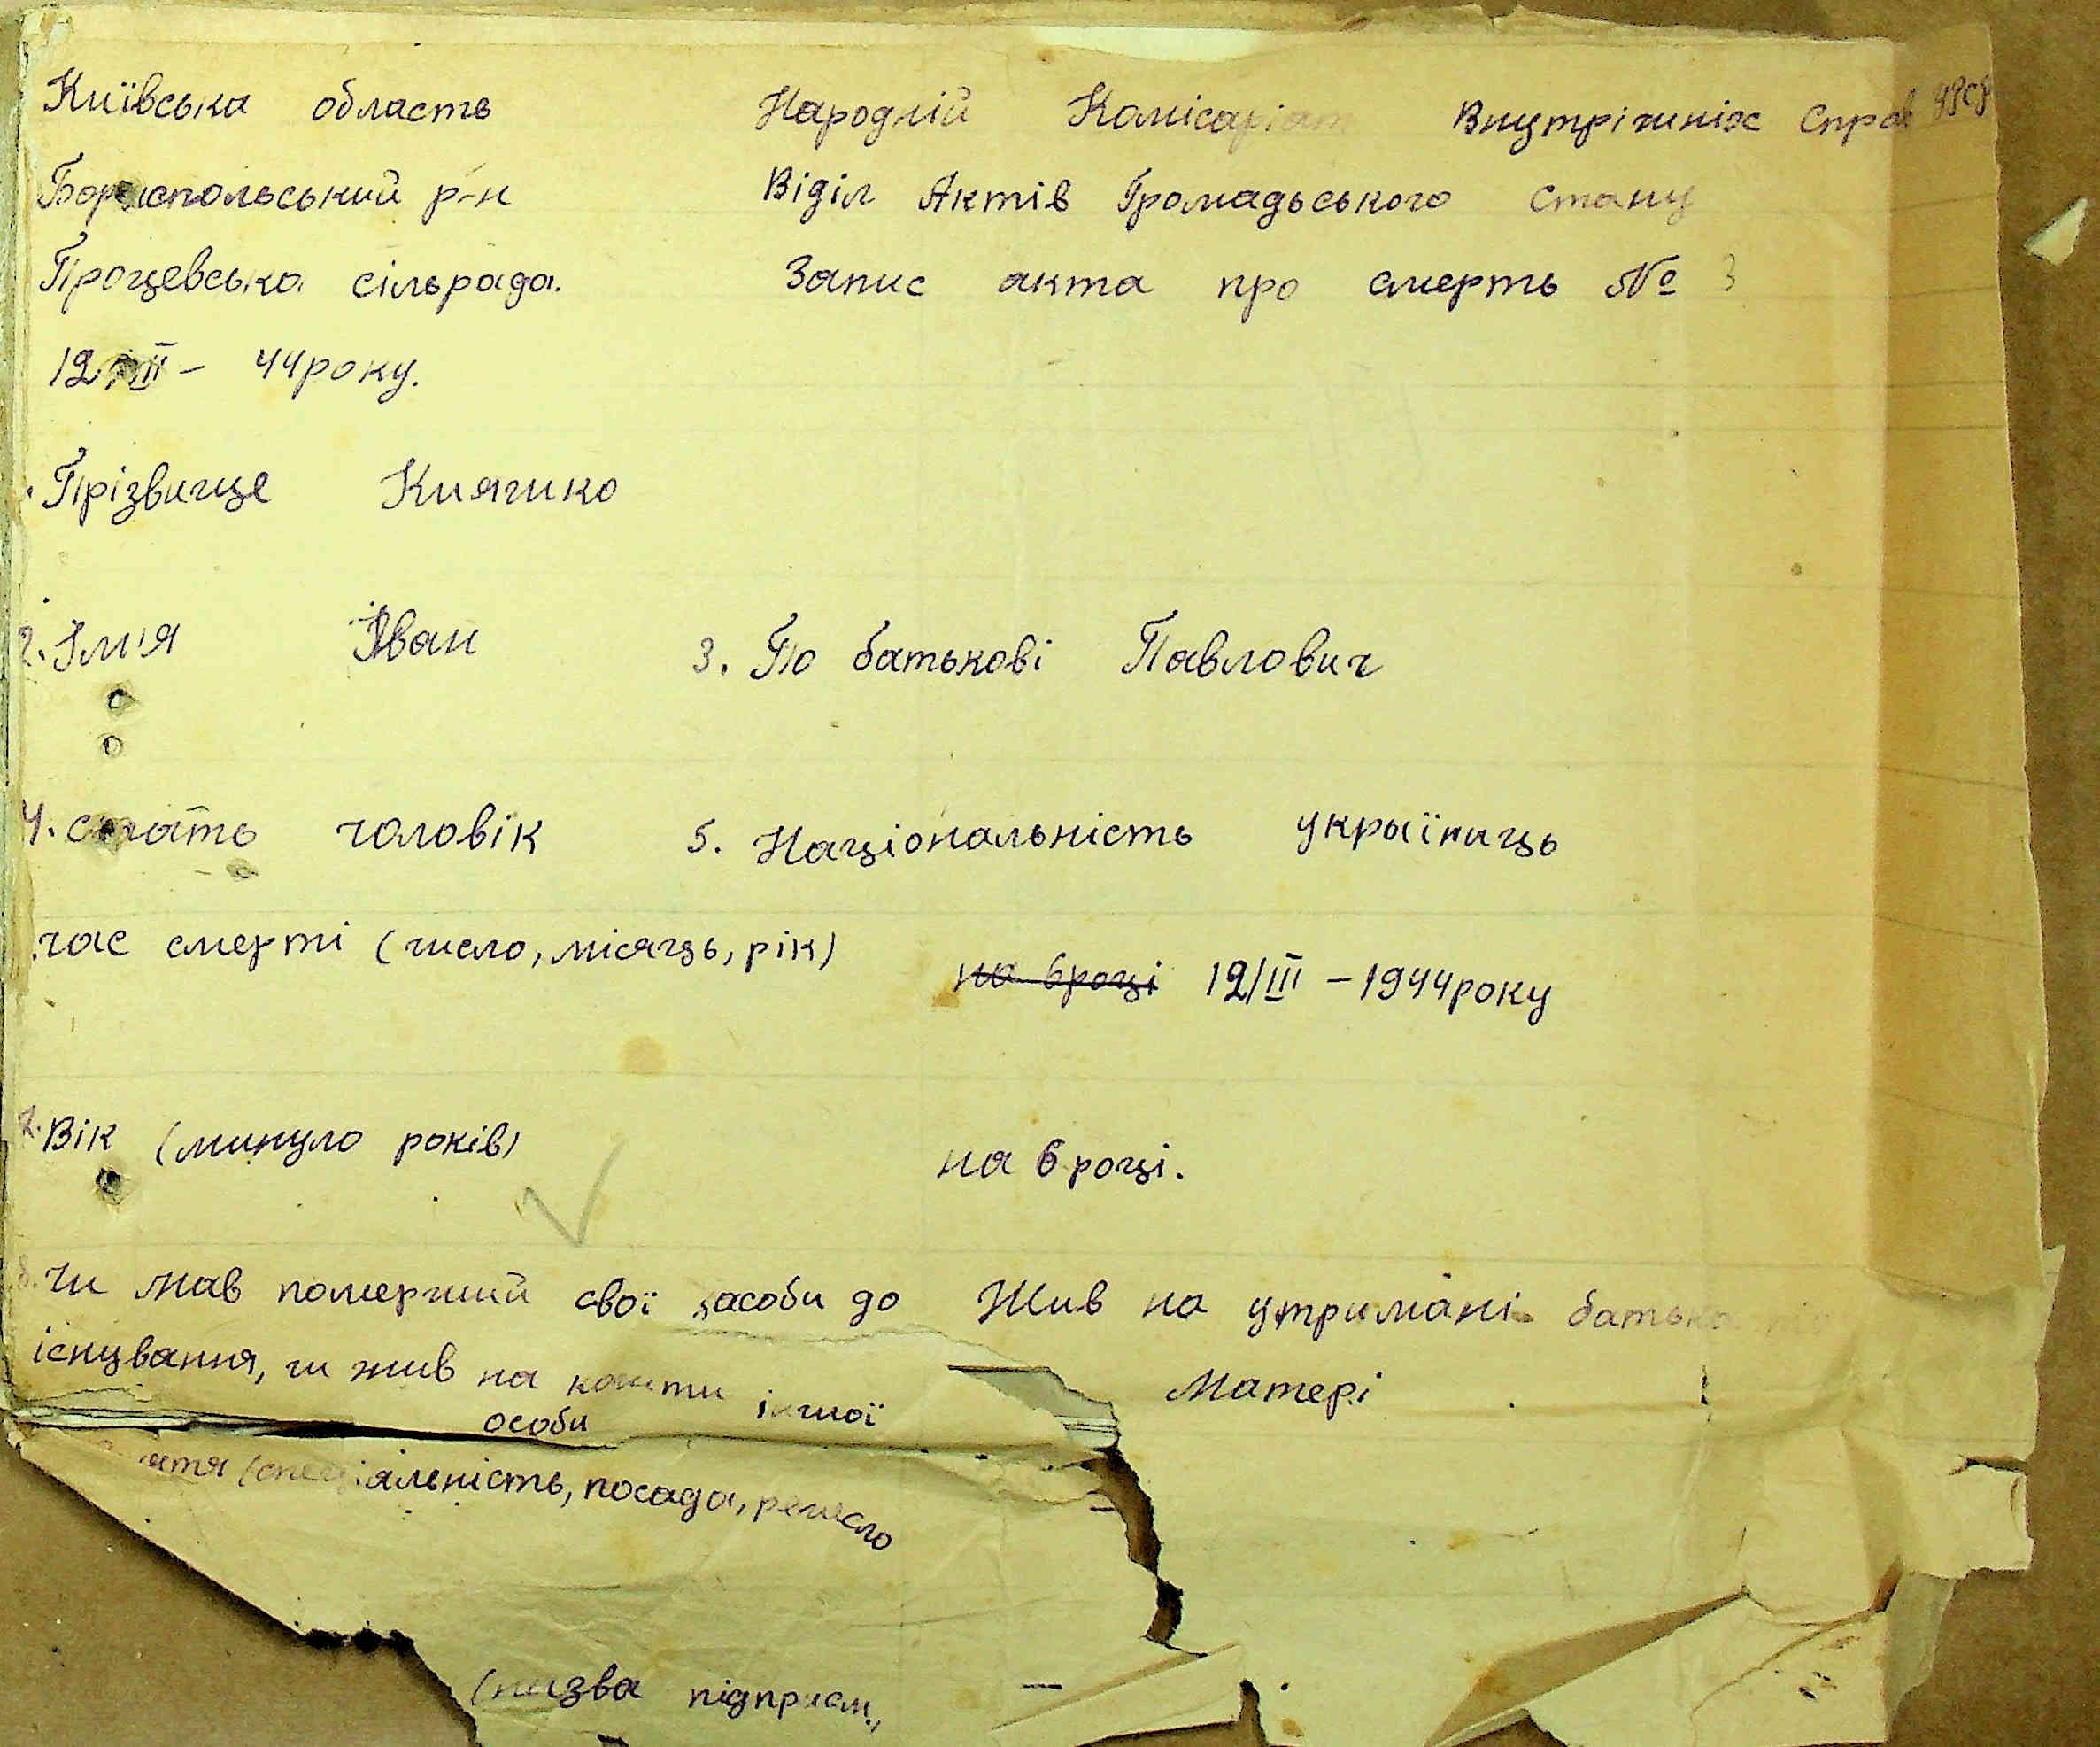 Київська область
Бориспольський р-н
Процевська сільрада.
12/III – 44року.
Народній Комісаріат Внутрішніх Справ УРСР
Віділ Актів Громадьського стану
Запис акта про смерть № 3
Прізвище Кияшко
2. Імʼя Іван 3. По батькові Павлович
4. стать чоловік 5. Національність україниць
час смерті (число, місяць, рік) на 6році 12/III – 1944року
7. Вік (минуло років) на 6 році.
8. Чи мав померший свої засоби до
існування, чи жив на кошти іншої
особи
Жив на утримані батька
Матері
яття (спеціяльність, посада, ремесло –
(назва підприєм., –